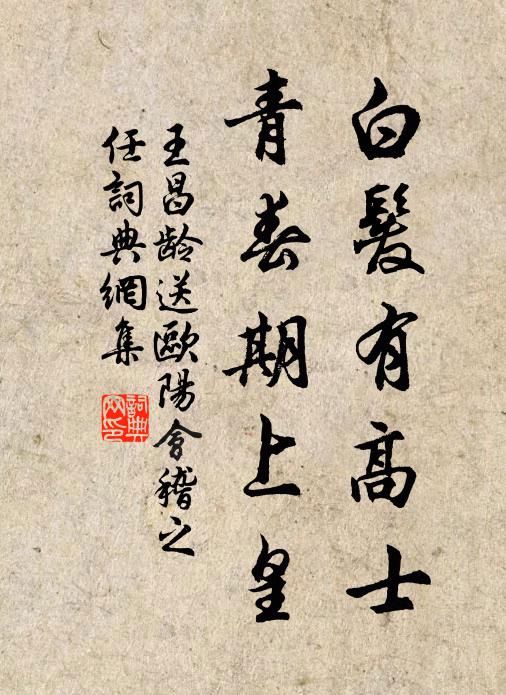 白髮有高士
青春期上皇
王昌龄送歐陽會稽之
任詞典網集
詞典
网印